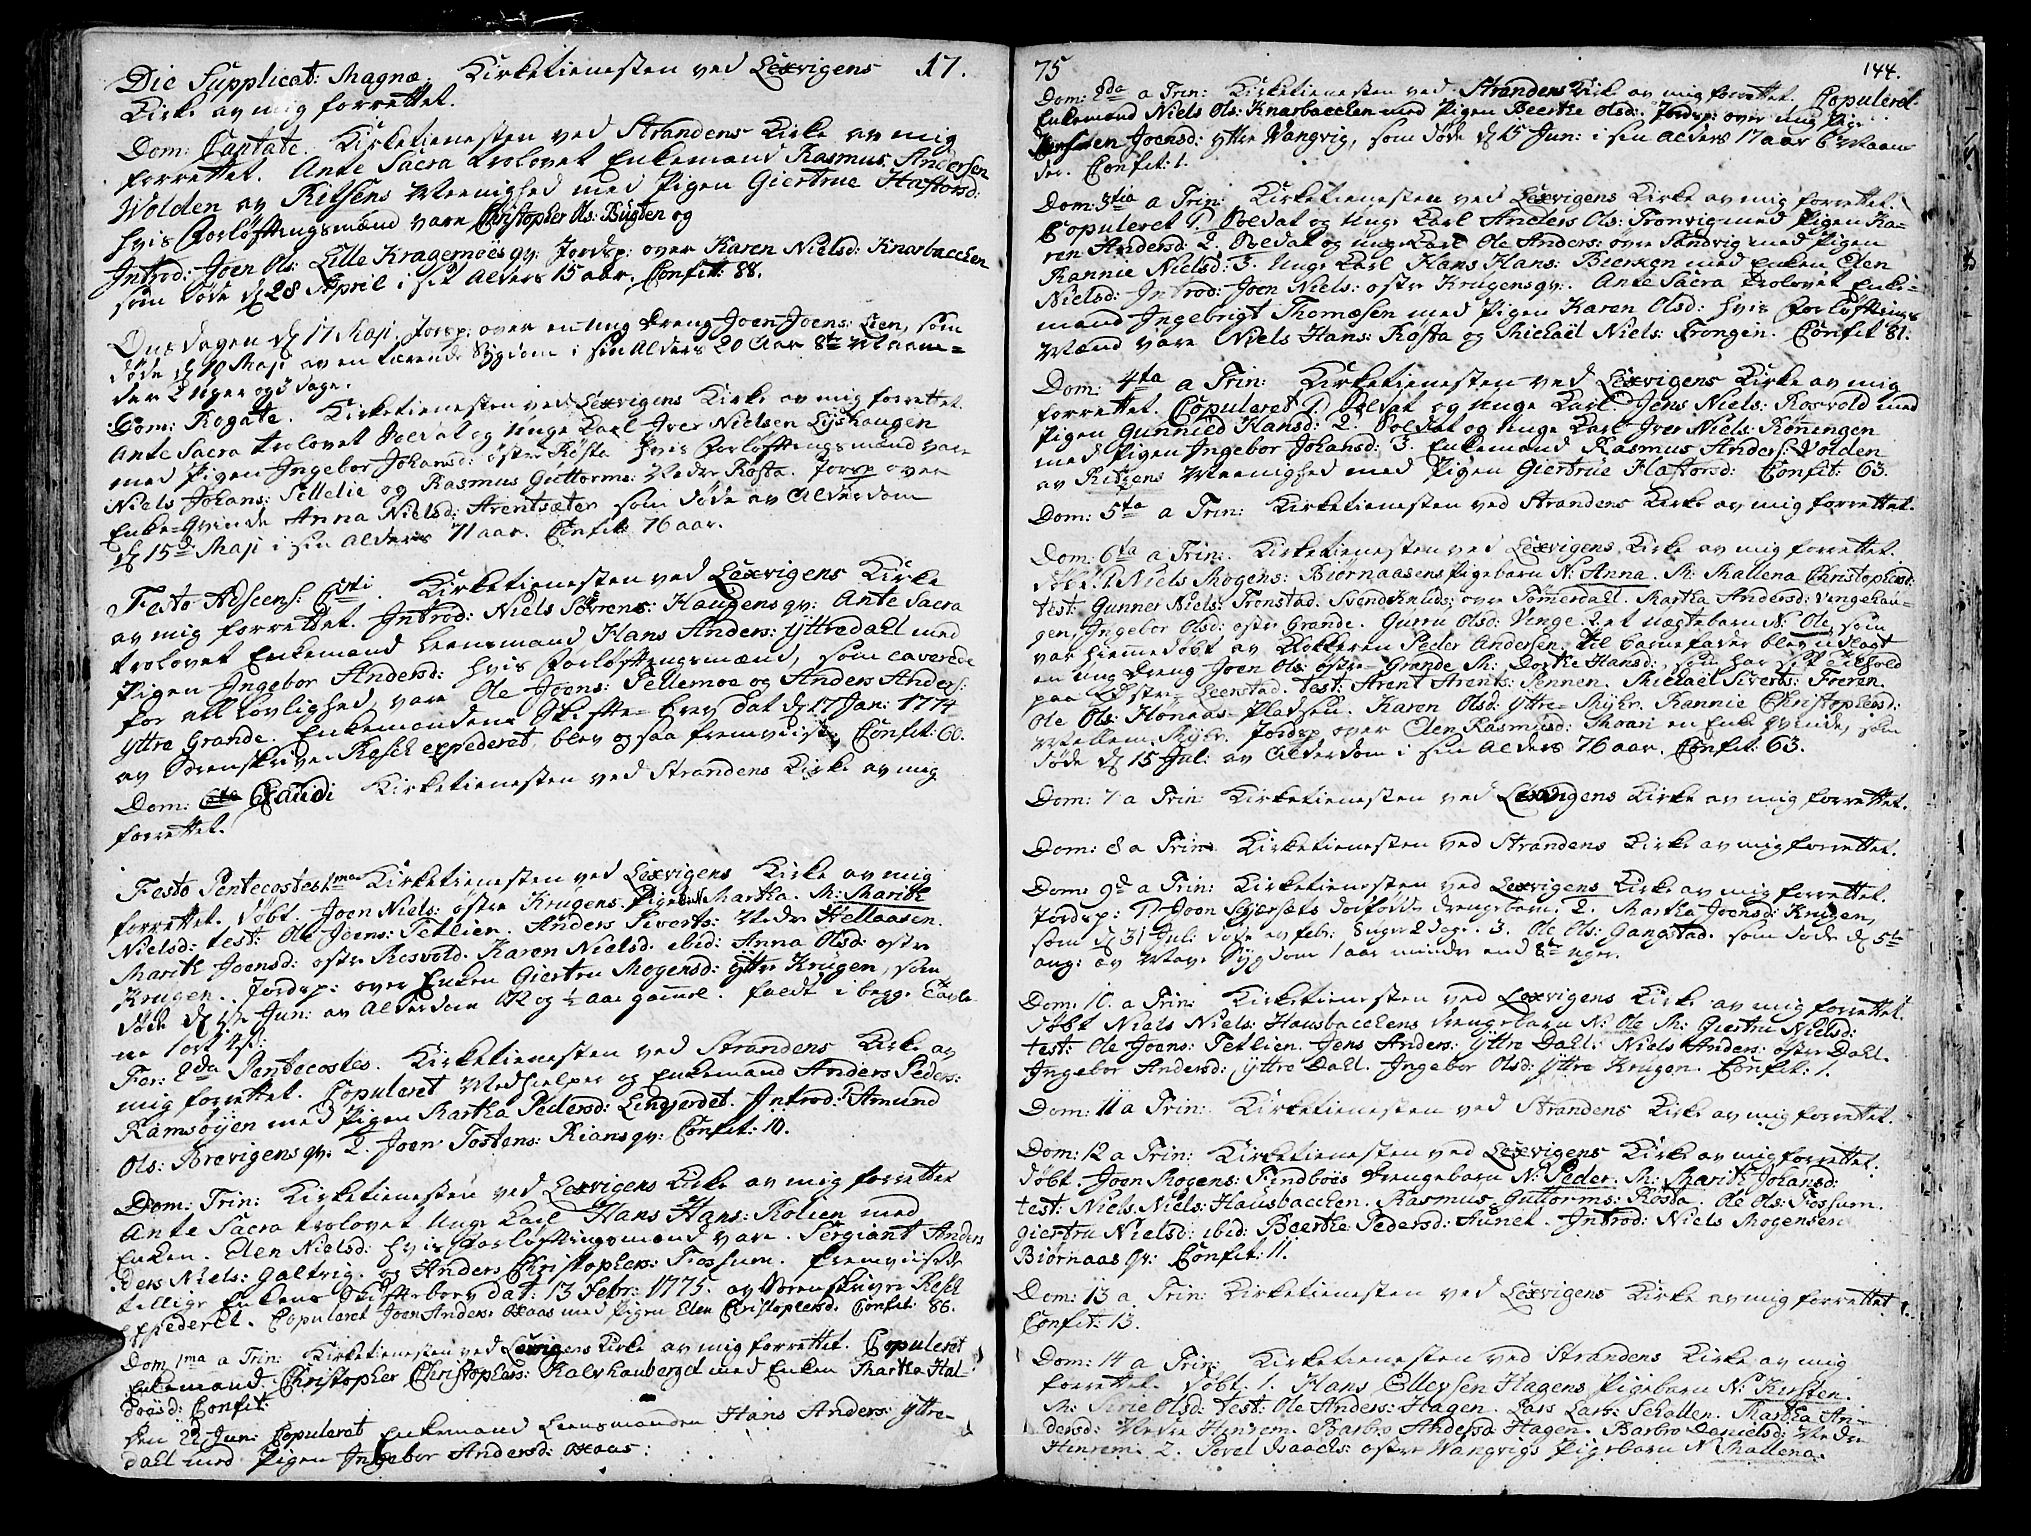 Die Supplicat: Magnæ. Kirketienesten ved Lexvigens 17.
Kirke av mig forrettet.
Dom: Cantate. Kirketienesten ved Strandens Kirke av mig
forrettet. Ante Sacra trolovet Enkemand Rasmus Andersen
Wolden av Ritsens Meenighed med Pigen Giertrue Hafstorsd:
hvis Forløftningsmænd vare Christopher Ols: Bugten og
Introd: Joen Ols: Lille Kragemoes qv: Jordsp: over Karen Nielsd: Knarbacchen
som døde d. 28 April i sit Alders 15 aar. Confit: 88.
Onsdagen d. 17 Maji. Jordsp: over en ung Dreng Joen Joens: Lien, som
døde d. 10 Maji av en tærende Sygdom i sin Alders 20 Aar 8te Maane-
der 2 Uger og 3 Dage.
Dom: Rogate. Kirketienesten ved Lexvigens Kirke av mig forrettet.
Ante Sacra trolovet Soldat og Unge Karl Iver Nielsen Lyshaugen
med Pigen Ingebor Johansd: østre Røsta hvis Forløftningsmænd vare
Niels Johans: Sellelie og Rasmus Guttorms: Nedre Røsta. Jordsp over
Enke-Qvinde Anna Nielsd: Arentsæter som døde av Alderdom
d. 15de Maji i sin Alders 71 aar. Confit: 76 aar.
Festo Adscens: Xsti. Kirketienesten ved Lexvigens Kirke
av mig forrettet. Introd: Niels Sørrens: Haugens qv: Ante Sacra
trolovet Enkemand Leensmand Hans Anders: Yttredahl med
Pigen Ingebor Andersd: hvis Forløftningsmænd, som caverede
for all lovlighed, vare Ole Joens: Sellemoe og Anders Anders:
Yttre Grande. Enkemandens Skifte-brev dat d. 17 Jan: 1774
av Sorenskriver Rosch expederet, blev ogsaa fremviist. Confit: 60.
Dom: Exaudi Kirketienesten ved Strandens Kirke av mig
forrettet.
Festo Pentecostes 1ma Kirketienesten ved Lexvigens Kirke av mig
forrettet. Døbt. Joen Niels: østre Krugens Pigebarn Martha. M: Marith
Nielsd: test: Ole Joens: Petlien. Anders Siverts: Nedre Hellaasen.
Marith Joensd: østre Rosvold. Karen Nielsd: ibid: Anna Olsd: østre
Krugen. Jordsp: over Enken Giertru Mogensd: yttre Krugen, som
døde d. Jun: av Alderdom og ½ aar gammel. faldt i begge Tavler-
ne 1 ort
Fer: 2da Pentecostes. Kirketienesten ved Strandens Kirke av
mig forrettet. Copuleret Medhielper og Enkemand Anders Peders:
Ramsøyen med Pigen Martha Pedersd: Lindgerdet. Introd: 1. Amund
Ols: Brevigens qv: 2. Joen Tostens: Rians qv: Confit: 10.
Dom: Trin: Kirketienesten ved Lexvigens Kirke av mig forrettet
Ante Sacra trolovet Unge Karl Hans Hans: Rolien med
Enken Elen Nielsd: hvis Forløftningsmænd vare. Sergiant Anders
Niels: Galtvig og Anders Christophers: Fossum. Fremviiste
tillige Enkens Skiftebrev dat: 13 Febr: 1775. av Sorenskriver Rosch
expederet. Copuleret Joen Anders: Oxaas med Pigen Elen Christophersd: Confit: 86.
Dom 1ma a Trin: Kirketienesten ved Lexvigens Kirke av mig forrettet. Copuleret
Enkemand Christopher Christophers: Kalvhauberget med Enken Martha Hal-
dorsd: Confit:
den 22 Jun: Copuleret Enkemand Leensmanden Hans Anders: Yttre-
dahl med Pigen Ingebor Andersd: Oxaas:
75 144.
Dom: 2da a Trin: Kirketienesten ved Strandens Kirke av mig forrettet. Copuleret
Enkemand Niels Ols: Knarbacchen med Pigen Beerthe Olsd: Jordsp: over ung Pige
Kersten Joensd: yttre Wangvig, som døde d. 15 Jun: i sin Alders 17 aar 6 Maane-
der. Confit: 1.
Dom: 3tia a Trin: Kirketienesten ved Lexvigens Kirke av mig forrettet.
Copuleret 1. Soldat og Unge Karl Anders Ols: Tronvig med Pigen Ka-
ren Andersd: 2. Soldat og unge Karl Ole Anders: øvre Sandvig med Pigen
Rannie Nielsd: 3. Unge Karl Hans Hans: Biersgen med Enken Elen
Nielsd: Introd: Joen Niels: østre Krugens qv: Ante Sacra trolovet Enke-
mand Ingebrigt Thomæsen med Pigen Karen Olsd: hvis Forløftnings
Mænd vare Niels Hans: Røsta og Michaël Niels: Trongen. Confit 81.
Dom: 4ta a Trin: Kirketienesten ved Lexvigens Kirke av mig
forrettet. Copuleret 1. Soldat og Unge Karl Jens Niels: Rosvold med
Pigen Gunnild Hansd: 2. Soldat og Unge Karl Iver Niels: Rønningen
med Pigen Ingebor Johansd: 3. Enkemand Rasmus Anders: Volden
av Ritzens Meenighed med Pigen Giertrue Hafstorsd: Confit: 63.
Dom: 5ta a Trin: Kirketienesten ved Strandens Kirke av mig forrettet.
Dom: 6ta a Trin: Kirketienesten ved Lexvigens Kirke av mig forrettet.
Døbt: 1. Niels Mogens: Biørnaasens Pigebarn N: Anna. M: Mallena Christophersd:
test: Gunner Niels: Tronstad. Svend Knuds: øvre Sømerdahl. Martha Andersd: Vingehau-
gen, Ingebor Olsd: østre Grande. Gurru Olsd: Vinge. 2. et uægtebarn N: Ole, som
var hiemmedøbt av Klokkeren Peder Andersen. til barnefader blev udlagt
en ung Dreng Joen Ols: østre Grande M: Dorthe Hansd: som har sit Tilhold
paa Leerstad. test: Arent Arents: Sennen. Michaël Siverts: Foeren.
Ole Ols: Hønnaas-Pladsen. Karen Olsd: Yttre-Myhr. Rannie Christophersd:
Mellem Myhr. Jordsp over Elen Rasmusd: Moxan en Enke qvinde, som
døde d. 15 Jul: av Alderdom i sin Alders 76 aar. Confit: 63.
Dom: 7 a Trin: Kirketienesten ved Lexvigens Kirke av mig forrettet.
Dom: 8 a Trin: Kirketienesten ved Strandens Kirke av mig forrettet.
Dom: 9de a Trin: Kirketienesten ved Lexvigens Kirke av mig forrettet.
Jordsp: 1. Joen Schiersæts dødfødde Drengebarn. 2. Martha Joensd: Krugen,
som d. 31 Jul: døde av febr: 8 uger 2 Dage. 3. Ole Ols: Gangstad. som døde d. 5te
aug: av Mave Sygdom 1 aar mindre end 8te uger.
Dom: 10. a Trin: Kirketienesten ved Lexvigens Kirke av mig forrettet.
Døbt Niels Niels: Hausbacchens Drengebarn N: Ole M: Giertru Nielsd:
test: Ole Joens: Petlien. Jens Anders: yttre Dahl. Niels Anders: østre Dahl.
Ingebor Andersd: yttre Dahl. Ingebor Olsd: yttre Krugen. Confit: 1.
Dom: 11 a Trin: Kirketienesten ved Strandens Kirke av mig forrettet.
Dom: 12 a Trin: Kirketienesten ved Lexvigens Kirke av mig forrettet.
Døbt. Joen Mogens: Findboes Drengebarn N: Peder. M: Marith Johansd:
test: Niels Niels: Hausbacchen. Rasmus Guttorms: Røsta. Ole Ols: Fossum.
Giertru Nielsd: ibid: Beerthe Pedersd: Aunet. Introd: Niels Mogensen
Biørnaas qv: Confit: 11.
Dom: 13 a Trin: Kirketienesten ved Lexvigens Kirke av mig forrettet.
Confit: 13.
Dom: 14 a Trin: Kirketienesten ved Strandens Kirke av mig
forrettet. Døbt. 1. Hans Ellevsen Hagens Pigebarn N: Kersten.
M: Sirie Olsd: test: Ole Anders: Hagen. Lars Lars: Schallen. Martha An-
dersd: Nedre Hinrem. Barbro Andersd Hagen. Barbro Danielsd: Nedre
Hinrem: 2. Povel Isaachs: østre Wangvigs Pigebarn N Mallena.